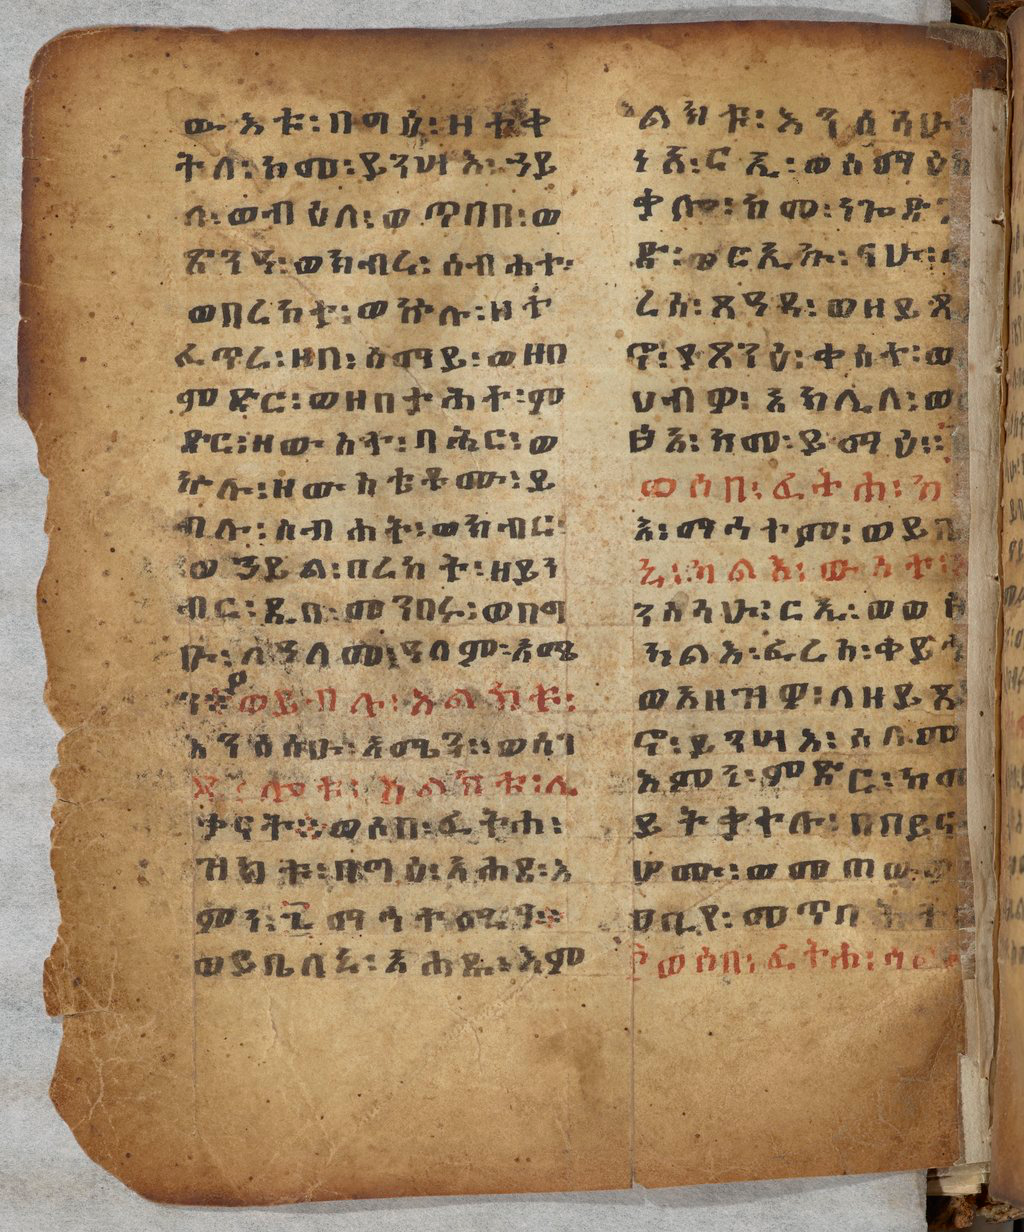 ውእቱ፡በግዕ፡ዘተቀ
ትለ፡ከመ፡ይንሣእ፡ኀይ
ለ፡ወብዕለ፡ወጥበበ፡ወ
ጽንዓ፡ወክብረ፡ስብሐተ፡
ወበረከተ፡ወኵሉ፡ዘተ
ፈጥረ፡ዘበ፡ሰማይ፡ወዘበ
ምድር፡ወዘበታሕተ፡ም
ድር፡ዘውስተ፡ባሕር፡ወ
ኵሉ፡ዘውስቴቶሙ፡ይ
ብሉ፡ስብሐት፡ወክብር፡
ወኀይል፡በረከት፡ዘይነ
ብር፡ዲበ፡መንበሩ፡ወበግ
ዑ፡ለዓለመ፡ዓለም፡አሜ
ን። ወይብሉ፡እልክቱ፡
እንስሳሁ፡አሜን። ወሰገ
ዱ፡ሎቱ፡እልክቱ፡ሊ
ቃናት። ወሶበ፡ፈትሐ፡
ዝክቱ፡በግዕ፡አሐደ፡እ
ምነ፡፯ማኅተሚሃ።
ወይቤለኒ፡አሐዱ፡እም
ልክቱ፡እንስሳሁ፡
ነጸርኢ፡ወሰማዕኩ
ቃሎ፡ከመ፡ነጐድጓ
ድ፡ወርኢኩ፡ናሁ፡
ረስ፡ጸዓዳ፡ወዘይጼ
ዐኖ፡ይጸንዕ፡ቀስተ፡ወ
ሀብዎ፡አክሊለ፡ወ
ፅአ፡ከመ፡ይማዕ።
ወሶበ፡ፈትሐ፡ካ
እ፡ማኅተም፡ወይቤ
ኒ፡ካልእ፡ውእቱ፡
ንስሳሁ፡ርኢ፡ወወፅ
ካልእ፡ፈረስ፡ቀይሕ
ወአዘዝዎ፡ለዘይጼ
ኖ፡ይንሣእ፡ሰላመ
እምነ፡ምድር፡ከመ
ይትቃተሉ፡በበይና
ወሶበ፡ፈትሐ፡ሣል